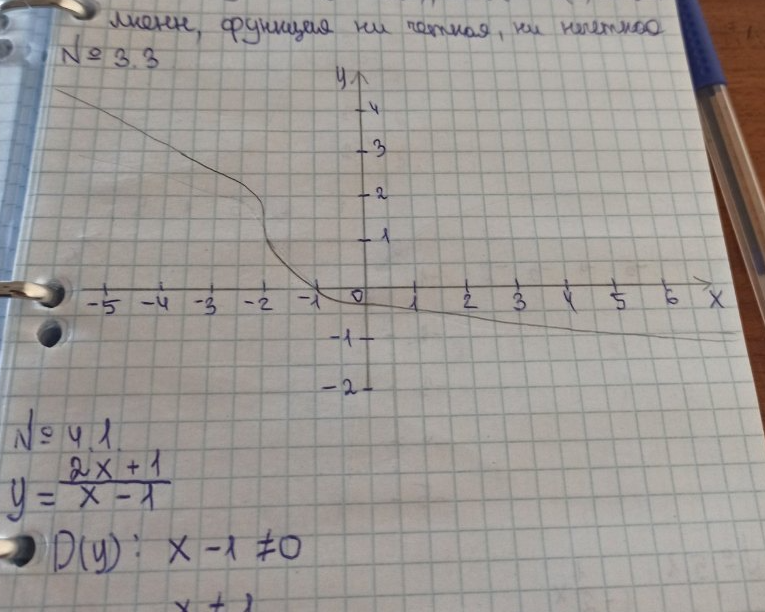 функция ни четная, ни нечетная
№ 3.3
y
4
3
2
1
-5 -4 -3 -2 -1 0 1 2 3 4 5 6 x
-1
-2
№ 4.1
y = \frac{2x + 1}{x - 1}
D(y): x - 1 ≠ 0
x ≠ 1